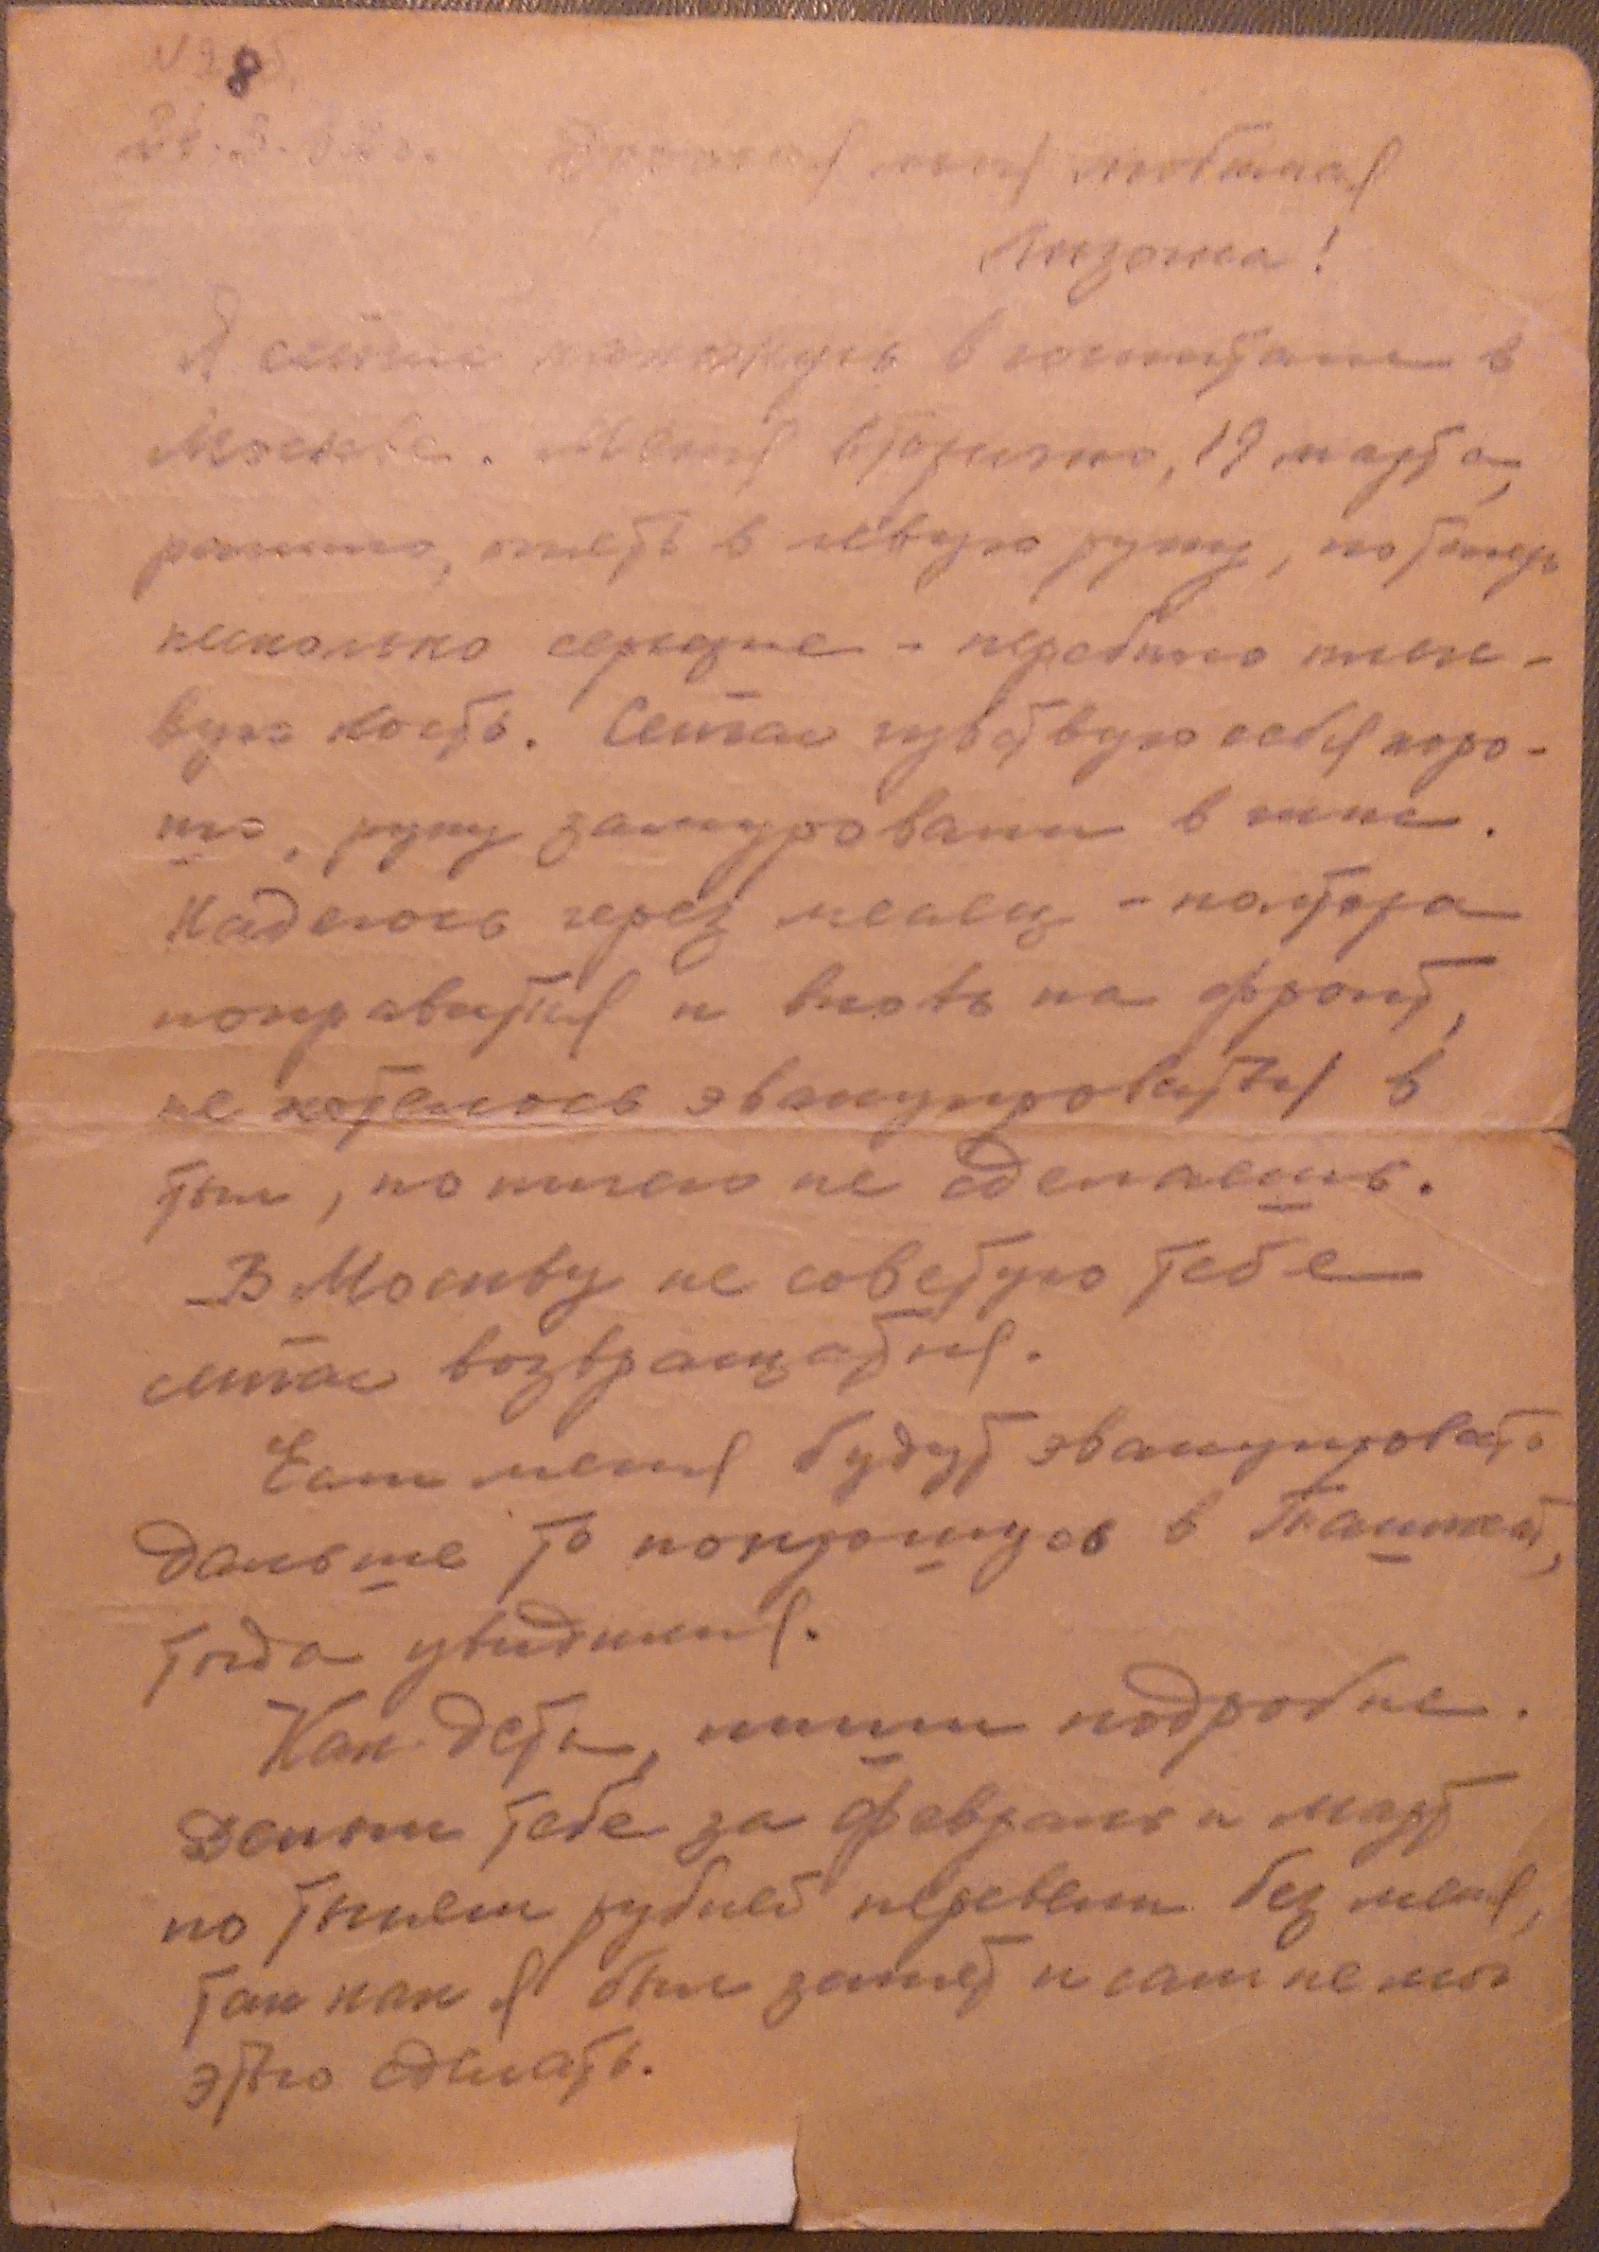 8
26.3.42г. Дорогая моя любимая
Лизочка!
Я сейчас нахожусь в госпитале в
Москве. Меня вторично, 19 марта,
ранило, опять в левую руку, но теперь
несколько серьезнее - перебило плече-
вую кость. Сейчас чувствую себя хоро-
шо, руку замуровали в гипс.
Надеюсь через месяц - полтора
поправиться и вновь на фронт,
не хотелось эвакуироваться в
тыл, но ничего не сделаешь.
В Москву не советую тебе
сейчас возвращаться.
Если меня будут эвакуировать
дальше то попрошусь в Ташкент,
тогда увидимся.
Как дети, пиши подробне.
Деньги тебе за февраль и март
по тысячи рублей перевели без меня,
так как я был занят и сам не мог
этого сделать.